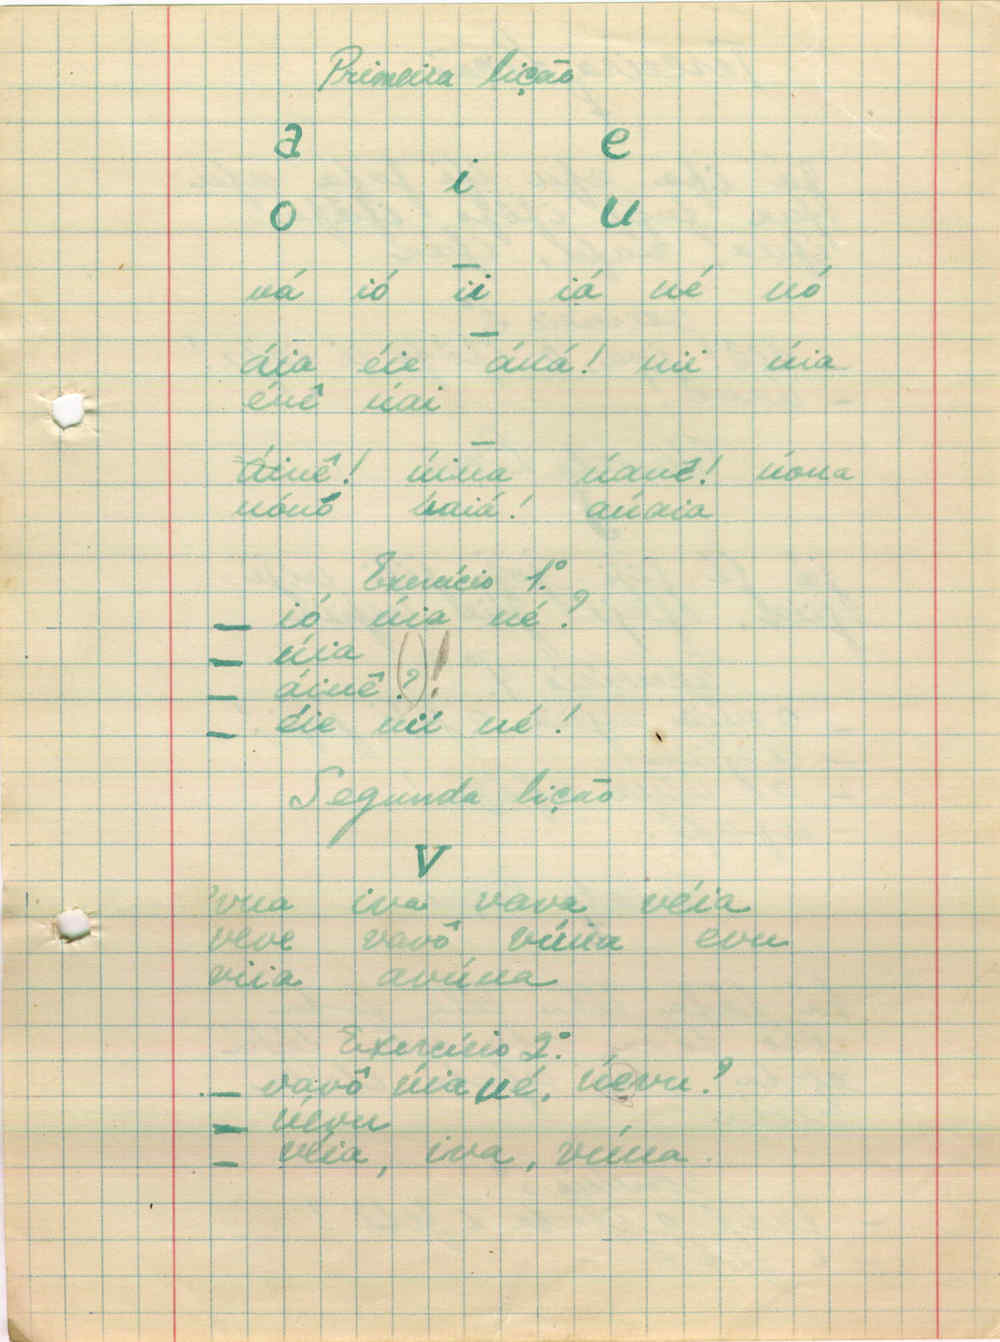 Primeira lição
a e
i
o u
uá ió ii iá ué uó
áia éie áuá! uii úia
éuê úai
áiuê! úiua úauê! úoua
uóuô uaiá! aúaia
Exercício 1.º
— ió úia ué?
— úia
— áiuê (?)!
— éie uii ué!
Segunda lição
v
vua iva vava véia
veve vavô vúua evu
viia avúua
Exercício 2.º
— vavô úia ué, úevu?
— úevu
— véia, iva, vúua.